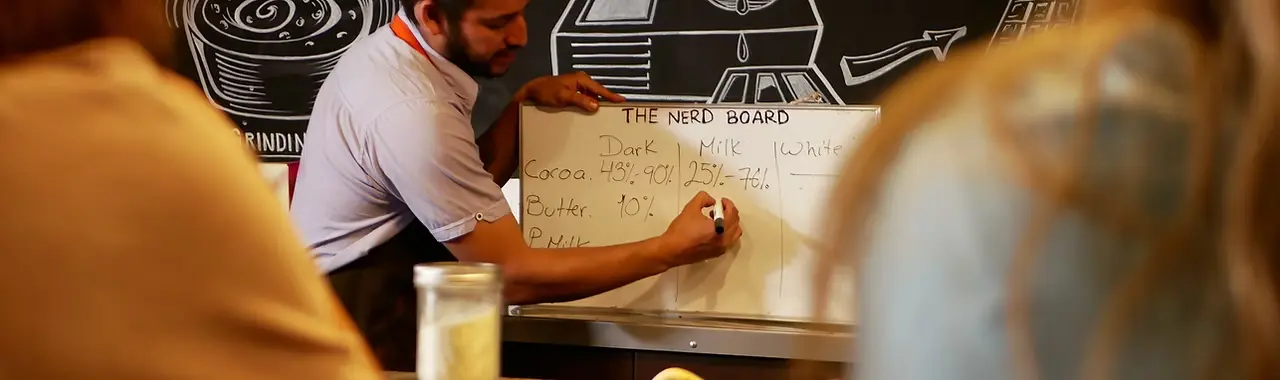 GRINDIN
THE NERD BOARD
Dark Milk White
Cocoa. 43%-90% 25%-76% —
Butter. 10%
P. Milk